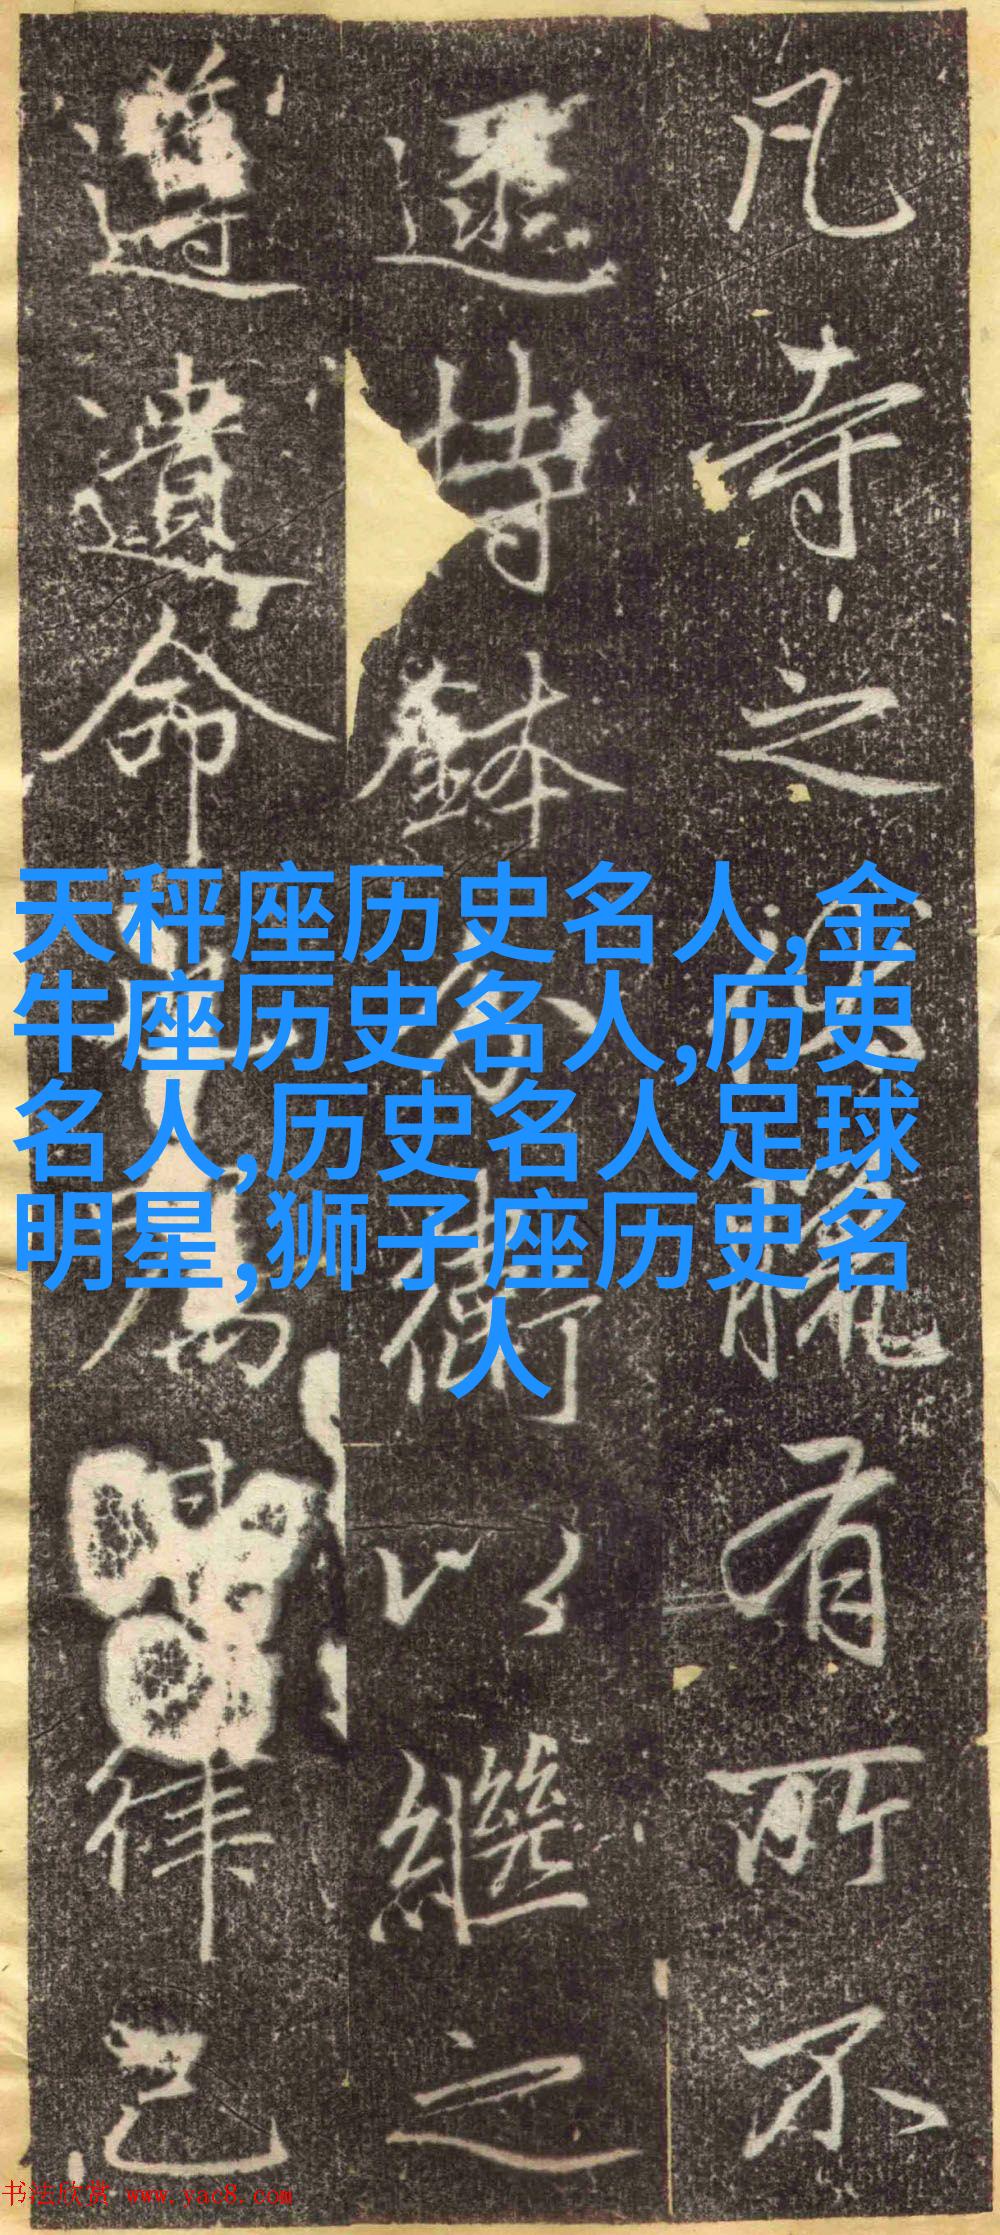 凡寺之有所不
持鉢以繼之
遵遺命爲律己
天秤座历史名人,金
牛座历史名人,历史
名人,历史名人足球
明星,狮子座历史名
人
书法欣赏 www.yac8.com